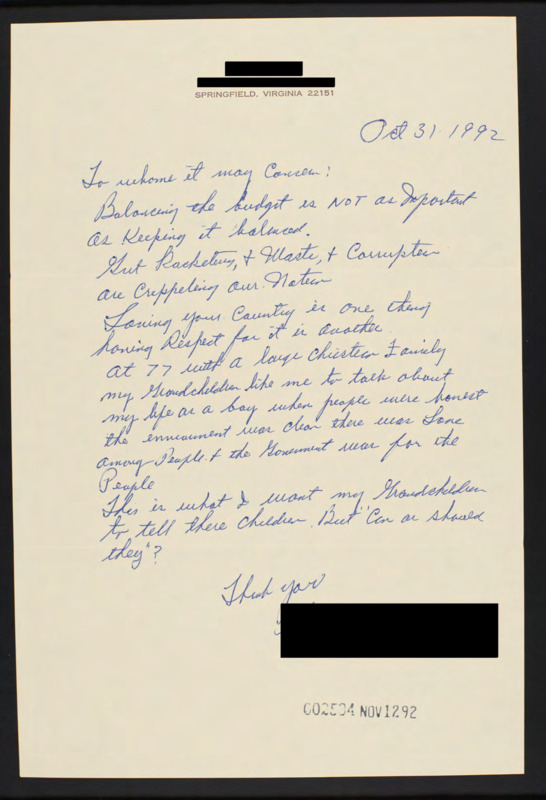 SPRINGFIELD, VIRGINIA 22151
Oct 31 1992
To whome it may Concern:
Balancing the budgit is NOT as Important
as Keeping it balanced.
Gvt Racketering, & Waste, & Corruption
are Crippeleing our Nation
Loving your Country is one thing
having Respect for it is another
At 77 with a large Chirstein Family
my Grandchildren like me to talk about
my life as a boy when people were honest
the enviurment was clean there was Love
among People & the Goverment was for the
People
This is what I want my Grandchildren
to tell there Children. But "Can or should
they"?
Thank you
002534 NOV1292